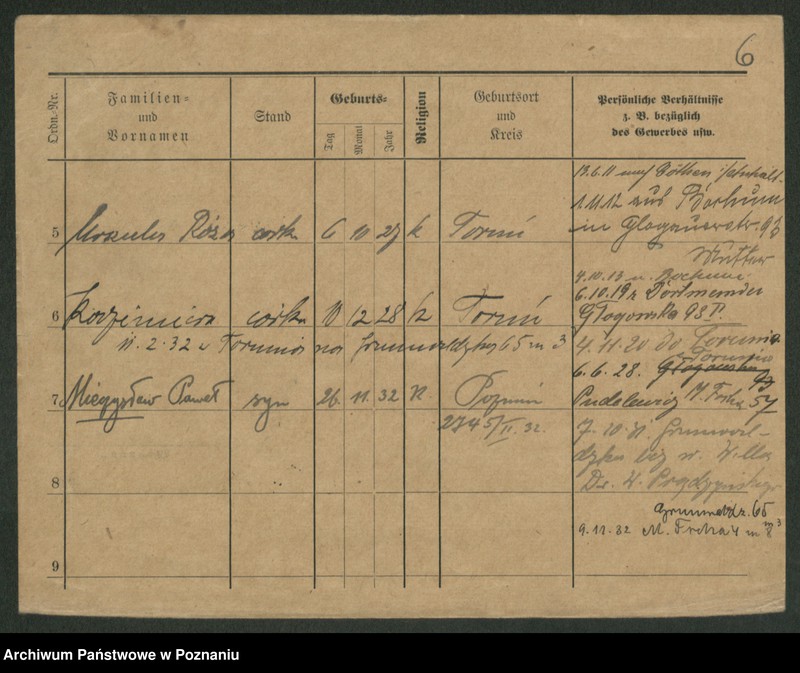 6
Ordn. Nr.
Familien=
und
Vornamen
Stand
Geburts=
Tag
Monat
Jahr
Religion
Geburtsort
und
Kreis
Persönliche Verhältnisse
z. B. bezüglich
des Gewerbes usw.
13.6.11
1.11.12 aus Bochum
in Glogauerstr. 93
5 Urszula Róża córka 6 10 27 k Toruń
Mutter
4.10.13 n. Bochum
6.10.19 z Dortmundu
6 Kazimiera córka 10 12 28 k Toruń
Głogowska 98
11.2.32 z Torunia na Grunwaldzką 65 m 3
4.11.20 do Torunia
z Torunia
6.6.28. Głogowska
7 Mieczysław Paweł syn 26. 11. 32 k Poznań
57
2745/II. 32.
7.10.31 Grunwal-
dzka
Dr. W.
8
Grunwaldz. 65
m 3
9.11.32 M. Focha 4 m 8
9
Archiwum Państwowe w Poznaniu